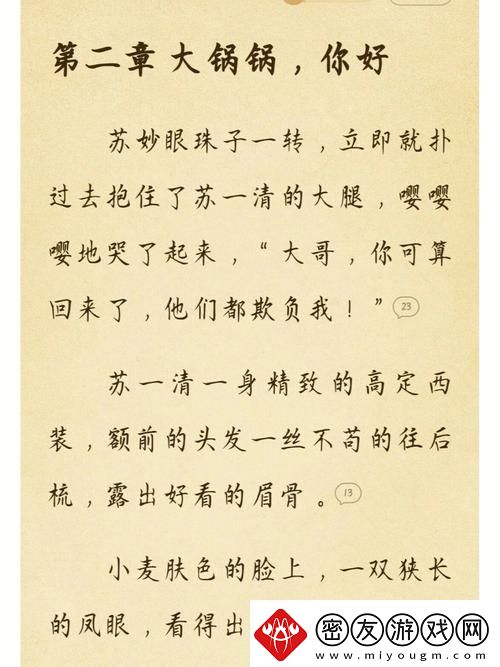 第二章 大锅锅，你好
苏妙眼珠子一转，立即就扑
过去抱住了苏一清的大腿，嘤嘤
嘤地哭了起来，“大哥，你可算
回来了，他们都欺负我！”23
苏一清一身精致的高定西
装，额前的头发一丝不苟的往后
梳，露出好看的眉骨。13
小麦肤色的脸上，一双狭长
的凤眼，看得出
密友游戏网
www.miyougm.com